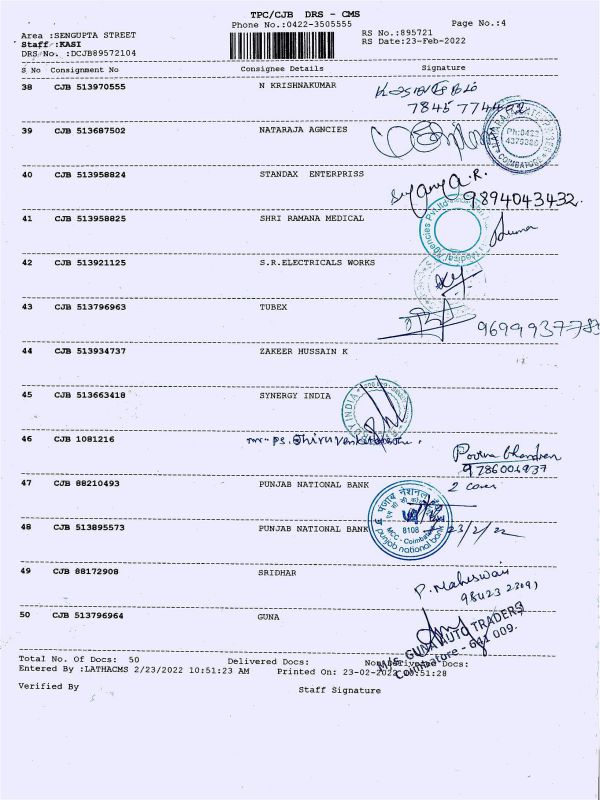 TPC/CJB DRS - CMS
Phone No.:0422-3505555
Page No.:4
Area :SENGUPTA STREET
RS No.:895721
Staff :KASI
RS Date:23-Feb-2022
DRS No. :DCJB89572104
S No Consignment No Consignee Details Signature
38 CJB 513970555 N KRISHNAKUMAR
7845 774492
39 CJB 513687502 NATARAJA AGNCIES
Ph:0422
COIMBATORE
40 CJB 513958824 STANDAX ENTERPRISS
9894043432.
41 CJB 513958825 SHRI RAMANA MEDICAL
Medical Agencies Pvt Ltd
42 CJB 513921125 S.R.ELECTRICALS WORKS
43 CJB 513796963 TUBEX
44 CJB 513934737 ZAKEER HUSSAIN K
45 CJB 513663418 SYNERGY INDIA
46 CJB 1081216
Poorna Chandran
47 CJB 88210493 PUNJAB NATIONAL BANK 2 cover
पंजाब नैशनल
8108
MCC - Coimbatore
punjab national bank
48 CJB 513895573 PUNJAB NATIONAL BANK 23/2/22
49 CJB 88172908 SRIDHAR
P. Maheswari
50 CJB 513796964 GUNA
M/s. GUNA AUTO TRADERS
Coimbatore - 641 009.
Total No. Of Docs: 50 Delivered Docs: Non Delivered Docs:
Entered By :LATHACMS 2/23/2022 10:51:23 AM Printed On: 23-02-2022 10:51:28
Verified By Staff Signature